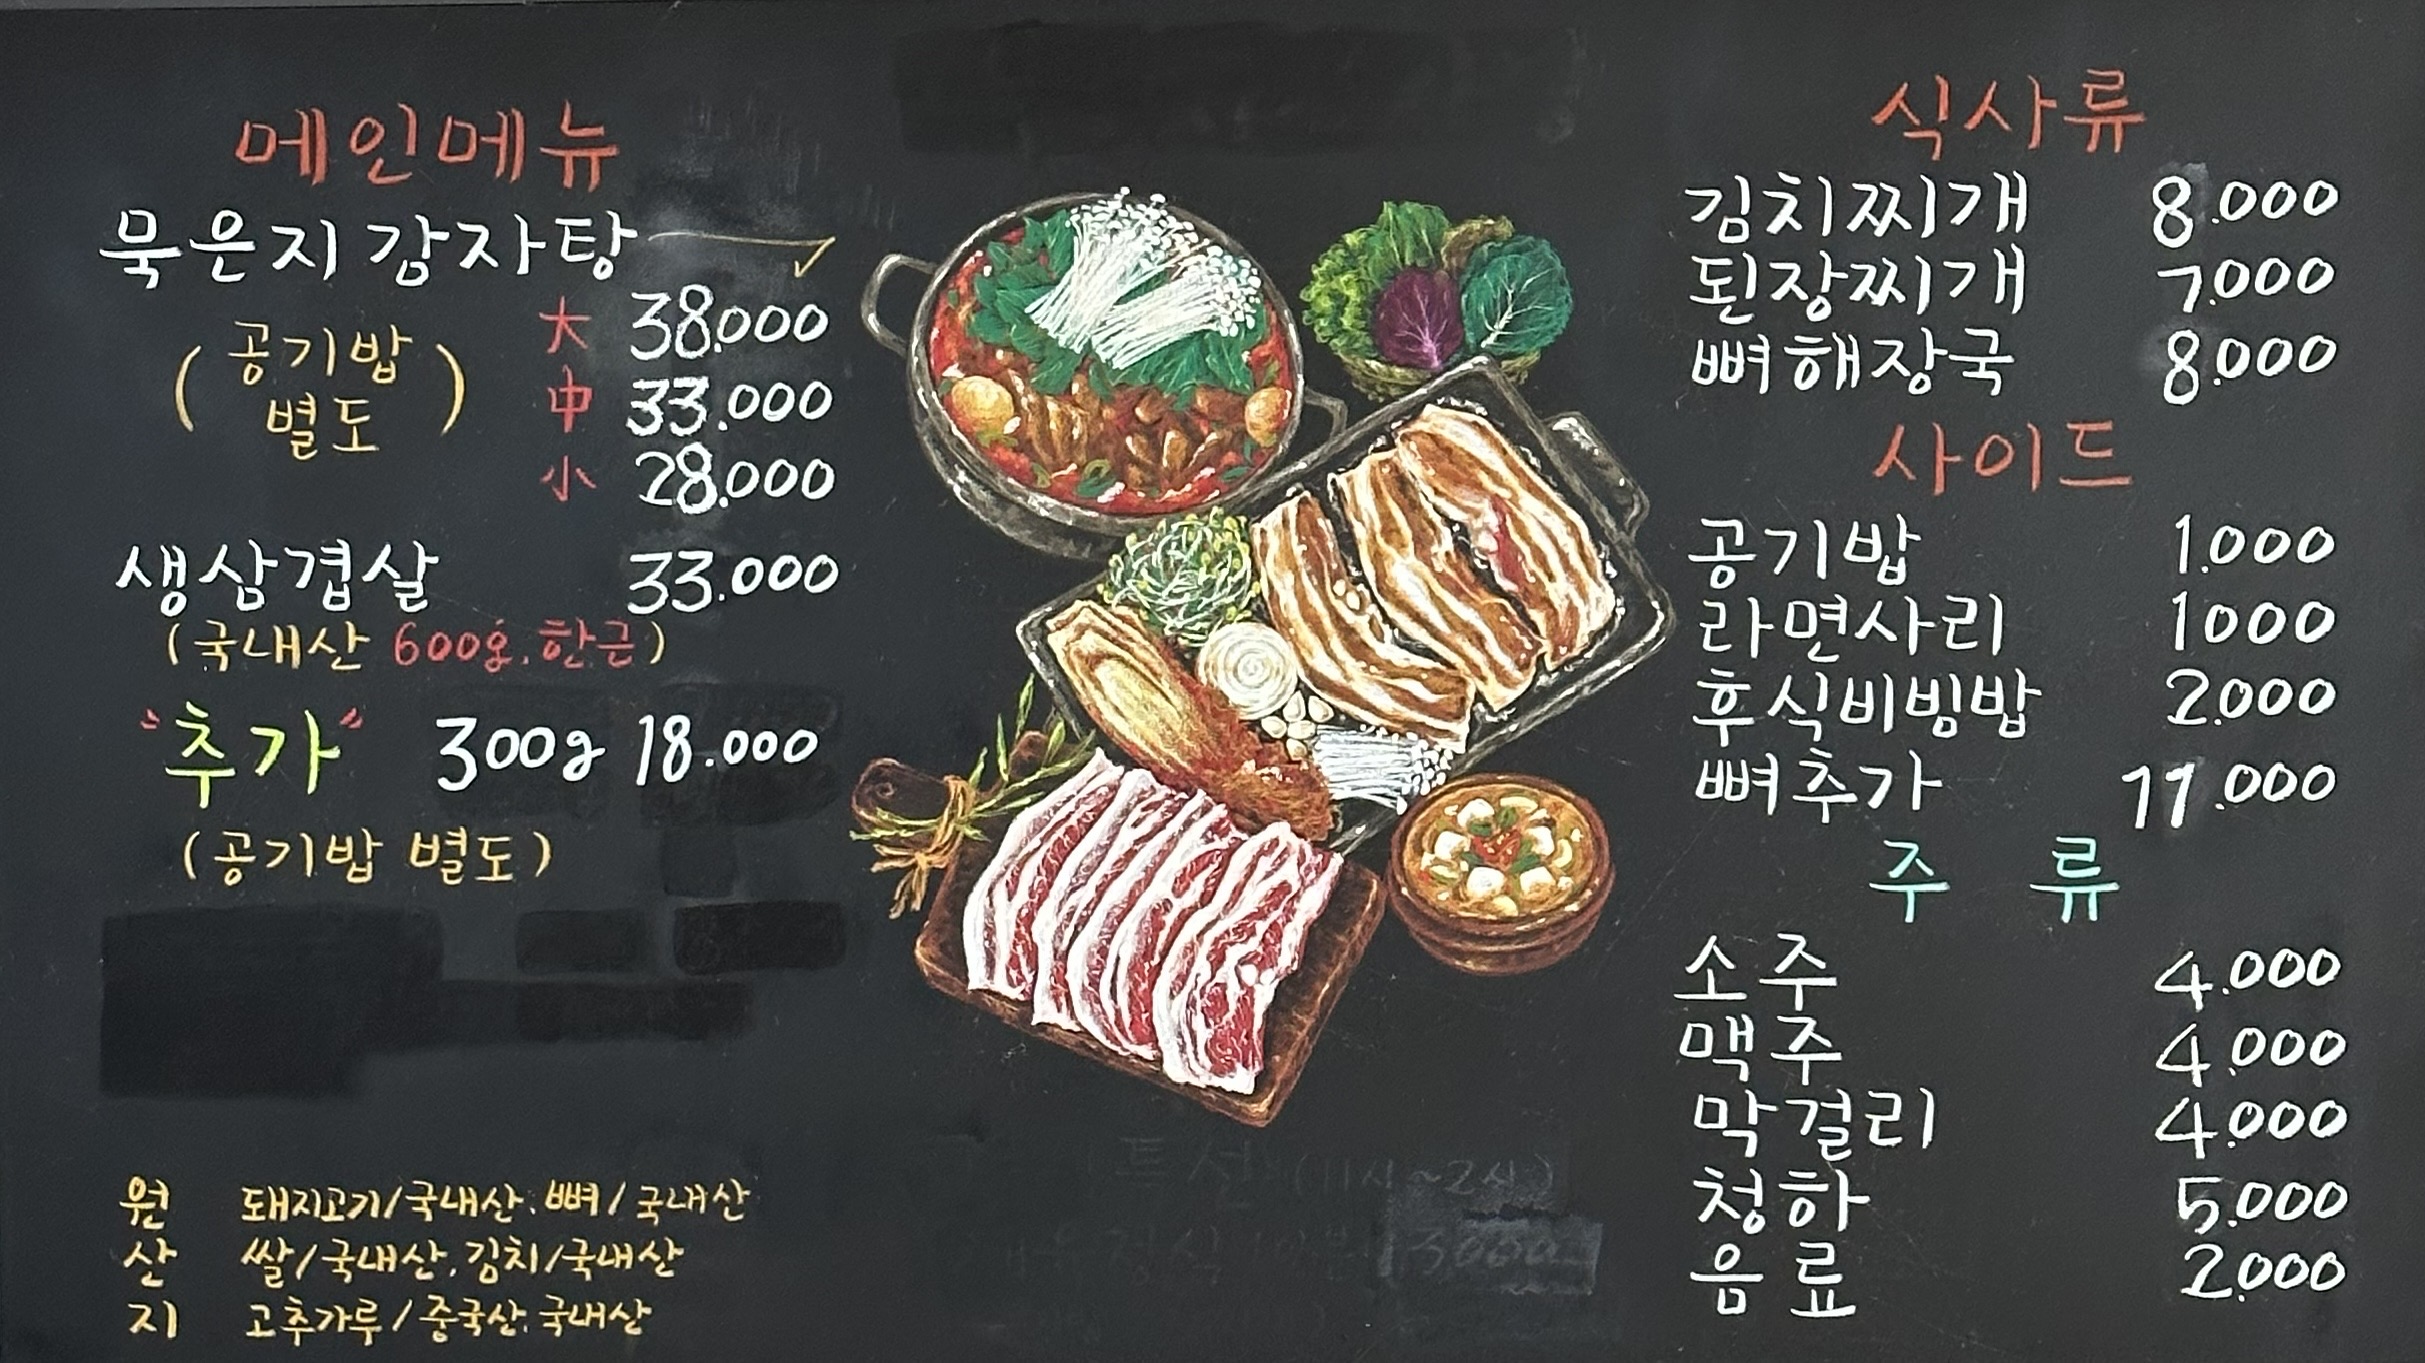 메인메뉴
묵은지 감자탕
(공기밥 별도)
大 38.000
中 33.000
小 28.000
생삼겹살 33.000
(국내산 600g. 한근)
"추가" 300g 18.000
(공기밥 별도)
원 돼지고기/국내산. 뼈/국내산
산 쌀/국내산. 김치/국내산
지 고추가루/중국산. 국내산
식사류
김치찌개 8.000
된장찌개 7.000
뼈해장국 8.000
사이드
공기밥 1.000
라면사리 1000
후식비빙밥 2.000
뼈추가 11.000
주 류
소주 4.000
맥주 4.000
막걸리 4.000
청하 5.000
음료 2.000
(11시~2시)